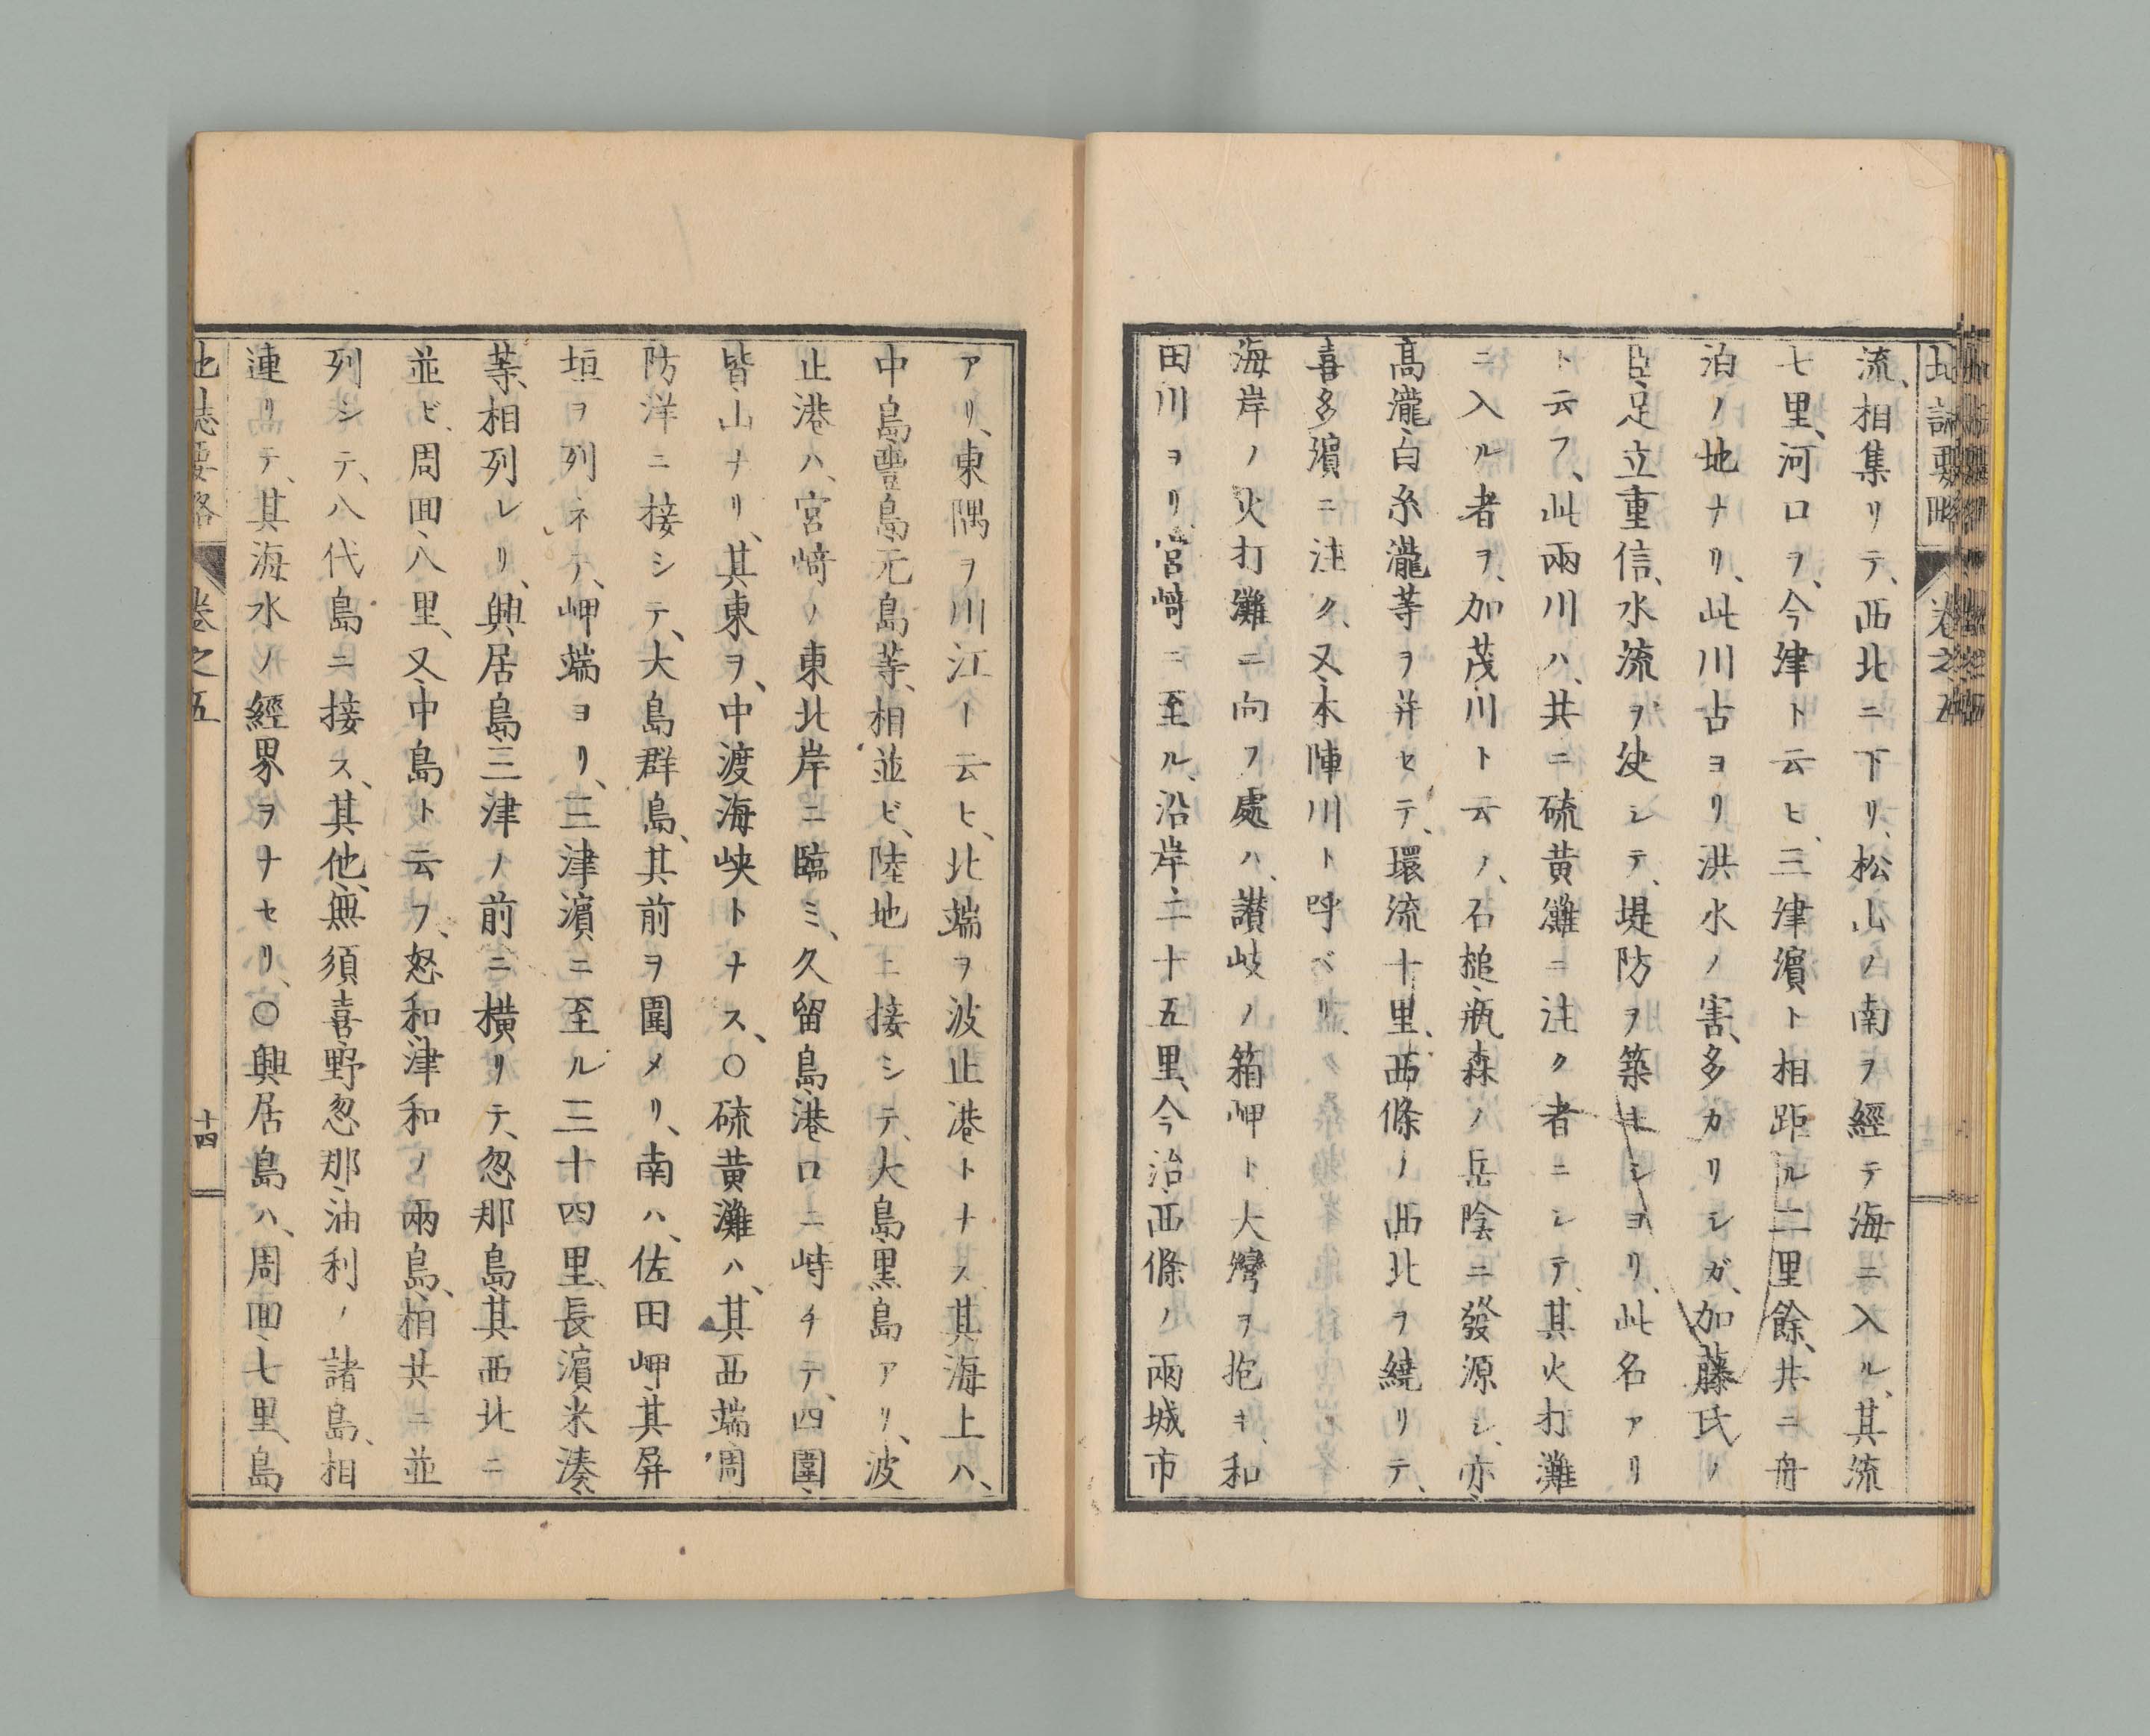 地誌要略 卷之五
流、相集リテ、西北ニ下リ、松山ノ南ヲ經テ海ニ入ル、其流
七里、河口ヲ、今津ト云ヒ、三津濵ト相距ル二里餘、共ニ舟
泊ノ地ナリ、此川古ヨリ洪水ノ害、多カリシガ、加藤氏ノ
臣、足立重信、水流ヲ使シテ、堤防ヲ築キシヨリ、此名アリ
ト云フ、此兩川ハ、共ニ硫黄灘ニ注ク者ニシテ、其火打灘
ニ入ル者ヲ、加茂川ト云ノ、石槌、瓶森ノ岳陰ニ發源シ、亦
高瀧、白糸瀧等ヲ并セテ、環流十里、西條ノ西北ヲ繞リテ、
喜多濵ニ注ク、又本陣川ト呼ベリ、
海岸ノ火打灘ニ向フ處ハ、讃岐ノ箱岬ト大灣ヲ抱キ、和
田川ヲリ、宮﨑ニ至ル、沿岸、二十五里、今治、西條ノ兩城市
アリ、東隅ヲ川江ト云ヒ、北端ヲ波止港トナス、其海上ハ、
中島、豐島、元島等、相並ビ、陸地ニ接シテ、大島、黒島アリ、波
止港ハ、宮﨑ノ東北岸ニ臨ミ、久留島、港口ニ峙チテ、四圍、
皆、山ナリ、其東ヲ、中渡海峡トナス、○硫黄灘ハ、其西端、周
防洋ニ接シテ、大島群島、其前ヲ圍メリ、南ハ、佐田岬、其屏
垣ヲ列ネテ、岬端ヨリ、三津濵ニ至ル三十四里、長濵、米湊、
等、相列レリ、興居島、三津ノ前ニ横リテ、忽那島、其西北ニ
並ビ、周囬、八里、又、中島ト云フ、怒和、津和ノ兩島、相共ニ並
列シテ、八代島ニ接ス、其他、無須喜、野忽那、油利ノ諸島、相
連リテ、其海水ノ經界ヲナセリ、○興居島ハ、周囬、七里、島
地誌要略 卷之五 十四